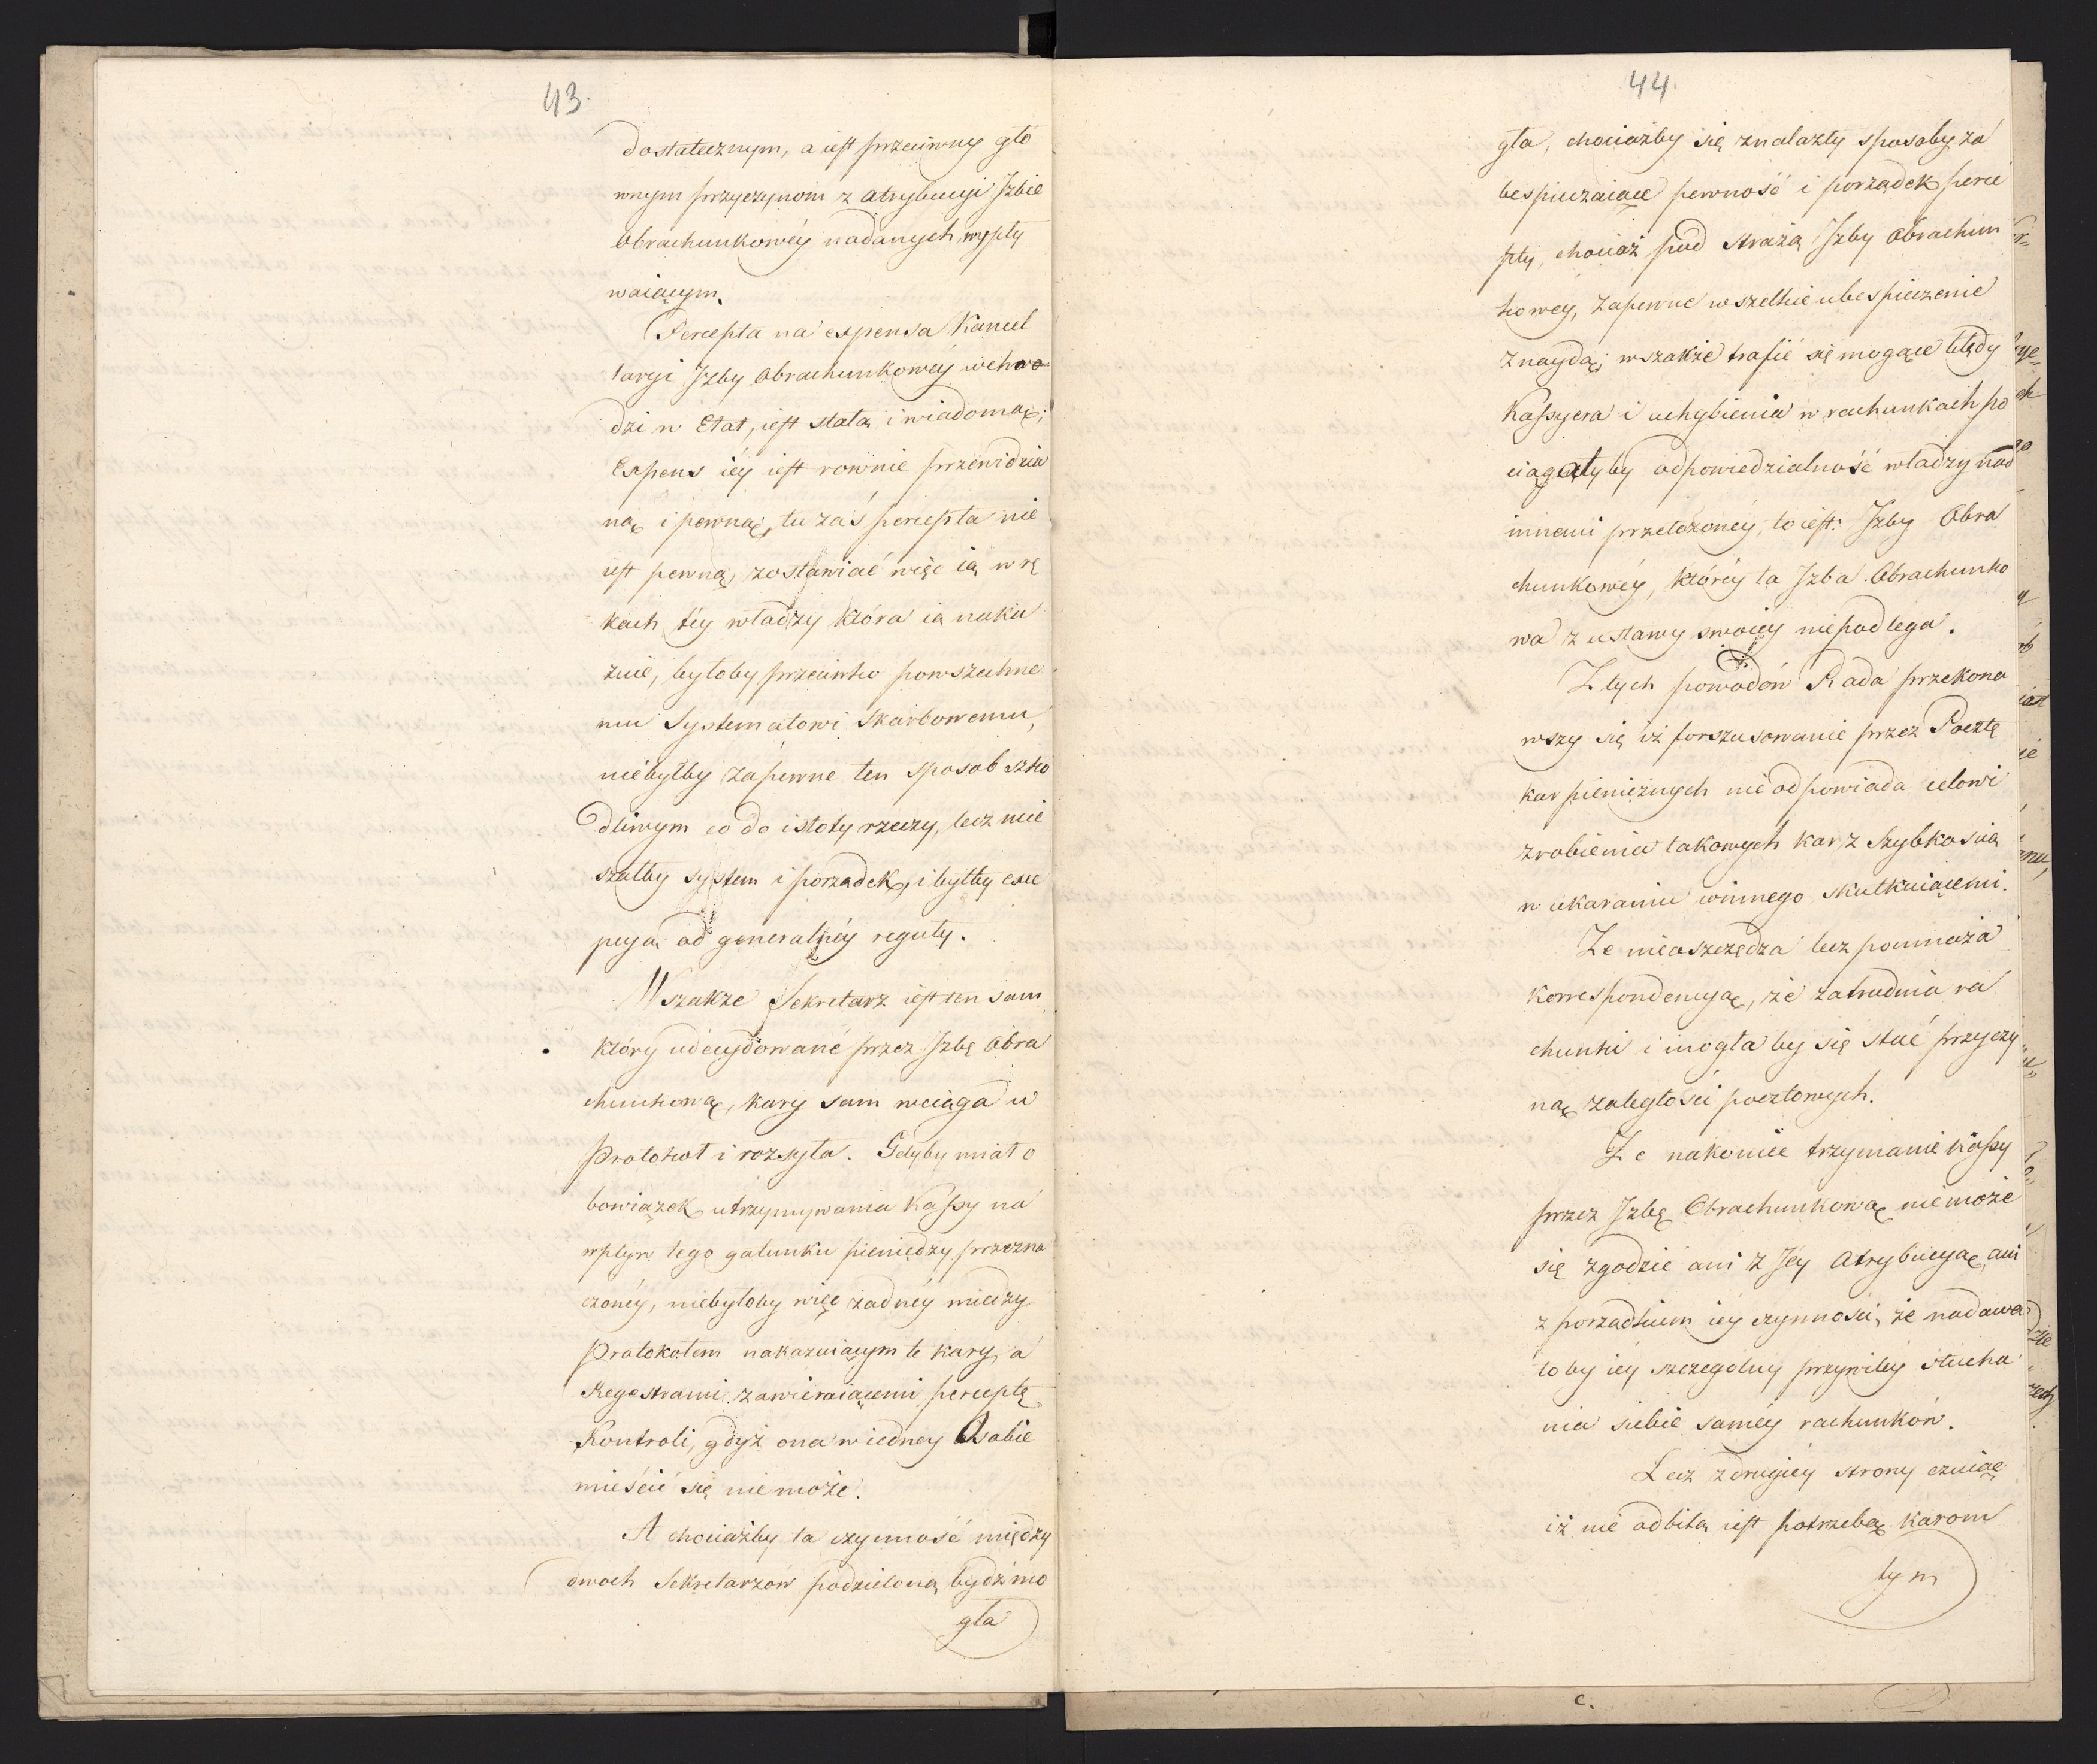 43.
dostatecznym, a iest przeciwny gło
wnym przyczynom z atrybucyi Izbie
Obrachunkowéy nadanych, wypły
waiącym.
Percepta na expensa Kancel
laryi Izby Obrachunkowéy wcho
dzi w Etat, iest stałą i wiadomą;
Expens iéy iest rownie przewidzia
ną i pewną, tu zaś percepta nie
iest pewną, zostawiać więc ią w rę
kach téy władzy która ią naka
zuie, byłoby przeciwko powszechne
mu Systematowi Skarbowemu,
niebyłby zapewne ten sposob szko
dliwym co do istoty rzeczy, lecz mie
szałby system i porządek, i byłby exce
pcyą od generalnéy reguły.
Wszakże Sekretarz iest ten sam
który udecydowane przez Izbę Obra
chunkową, kary sam wciąga w
Protokoł i rozsyła. Gdyby miał o
bowiązek utrzymywania Kassy na
wpływ tego gatunku pieniędzy przezna
czonéy, niebyłoby więc żadnéy miedzy
Protokołem nakazuiącym te kary, a
Regestrami zawieraiącemi perceptę
Kontroli, gdyż ona w iedney Osobie
mieścić się nie może.
A chociażby ta czynność między
dwoch Sekretarzów podzieloną bydź mo
gła
44.
gła, chociażby się znalazły sposoby za
bespieczaiące pewność i porządek perce
pty, chociaż pod strażą Izby Obrachun
kowey, zapewne wszelkie ubespieczenie
znaydą; wszakże trafić się mogące błędy
Kassyera i uchybienia w rachunkach po
ciągałyby odpowiedzialność władzy nad
innemi przełożonéy, to iest: Izby Obra
chunkowéy, któréy ta Izba Obrachunko
wa z ustawy swoiéy niepodlega.
Z tych powodów Rada przekona
wszy się iż forszusowanie przez Pocztę
kar pieniężnych nie odpowiada celowi
zrobienia takowych kar z szybkością
w ukaraniu winnego skutkuiącemi.
Że nieoszczędza lecz pomnaża
korrespondencyą, że zatrudnia ra
chunki i mogła by się stać przyczy
ną zaległości pocztowych.
Że nakoniec trzymanie Kassy
przez Izbę Obrachunkową nie może
się zgodzić ani z Jéy Atrybucyą, ani
z porządkiem iéy czynności, że nadawa
ło by iéy szczegolny przywiléy słucha
nia siebie saméy rachunków.
Lecz z drugiéy strony czuiąc
iż nie odbitą iest potrzebą karom
tym